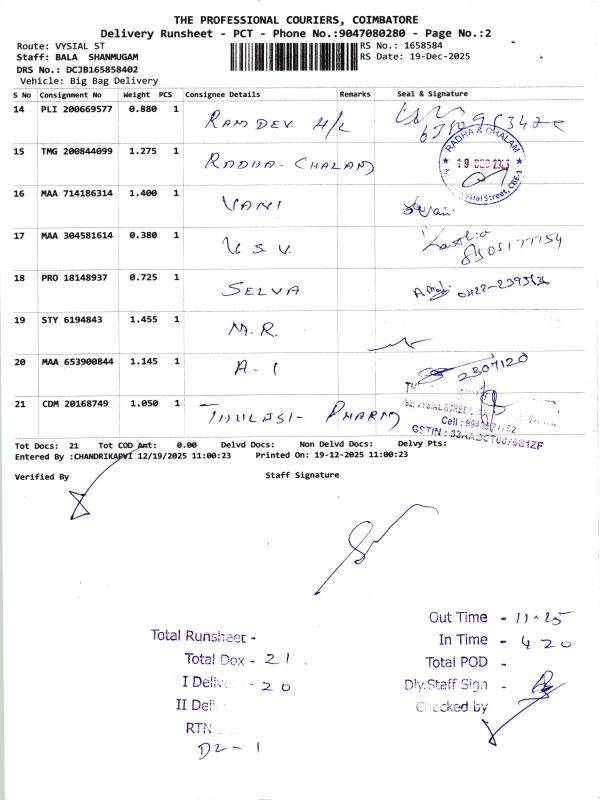 THE PROFESSIONAL COURIERS, COIMBATORE
Delivery Runsheet - PCT - Phone No.:9047080280 - Page No.:2
Route: VYSIAL ST
RS No.: 1658584
Staff: BALA SHANMUGAM
RS Date: 19-Dec-2025
DRS No.: DCJB165858402
Vehicle: Big Bag Delivery
S No Consignment No Weight PCS Consignee Details Remarks Seal & Signature
14 PLI 200669577 0.880 1 RAMDEV H/L
15 TMG 200844099 1.275 1 RADHA-CHALAM
RADHA & CHALAM
19 DEC 2025
Vysial Street, CBE-1
16 MAA 714186314 1.400 1 VANI
17 MAA 304581614 0.380 1 U S V.
18 PRO 18148937 0.725 1 SELVA
19 STY 6194843 1.455 1 M.R.
20 MAA 653900844 1.145 1 A-1 2307120
21 CDM 20168749 1.050 1 THULASI-PHARM
52, VYSIAL STREET
Cell :
GSTIN :
Tot Docs: 21 Tot COD Amt: 0.00 Delvd Docs: Non Delvd Docs: Delvy Pts:
Entered By :CHANDRIKAPVI 12/19/2025 11:00:23 Printed On: 19-12-2025 11:00:23
Verified By Staff Signature
Out Time - 11-25
Total Runsheet -
In Time - 4 20
Total Dox - 21
Total POD -
I Deliv - 20
Dly.Staff Sign -
II Deli
Checked by
RTN
D2-1